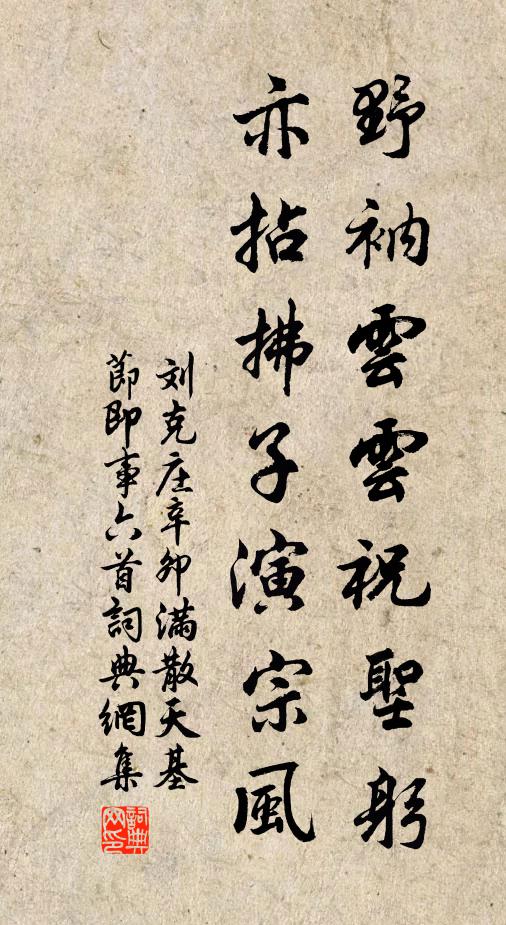 野衲雲雲祝聖躬
亦拈拂子演宗風
刘克庄辛卯滿散天基
節即事六首詞典網集
詞典网印